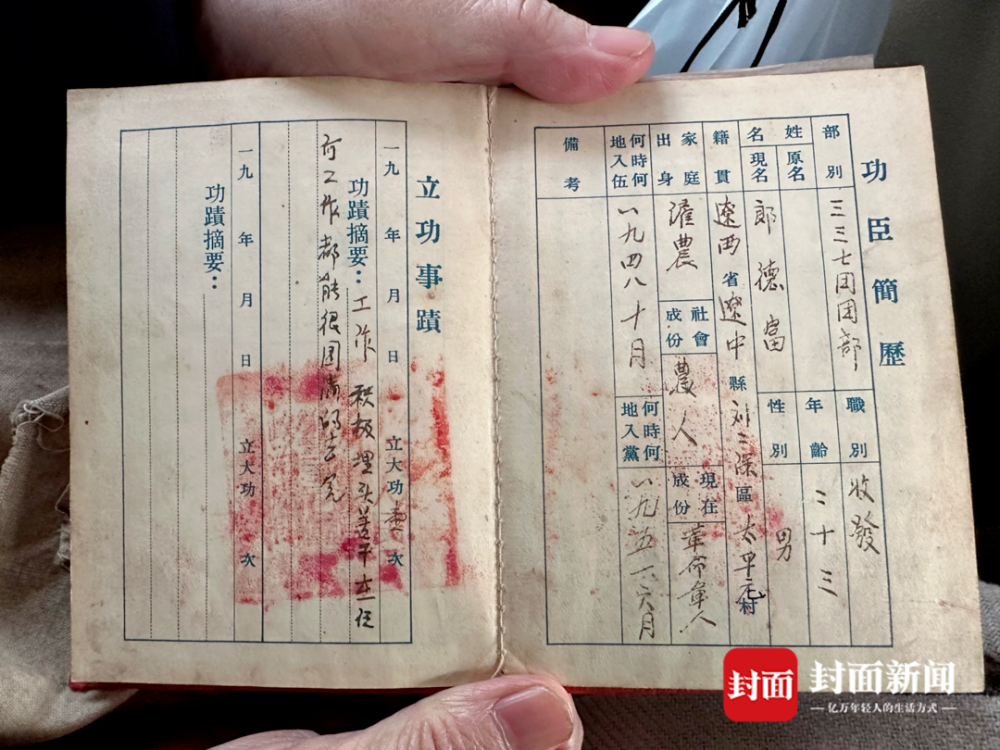 功臣簡歷
部別 三三七团团部 職別 收發
姓名 原名 年齡 二十三
現名 郎德富 性別 男
籍貫 遼西省遼中縣刘二深區太平 村
家庭出身 雇農 社會成份 農人 現在成份 革命軍人
何時何地入伍 一九四八十月 何時何地入黨 一九五一六月
備考
立功事蹟
一九 年 月 日 立大功 次
功蹟摘要：工作积极埋头苦干
工作都能很圆满的去完
一九 年 月 日 立大功 次
功蹟摘要：
封面
封面新闻
亿万年轻人的生活方式